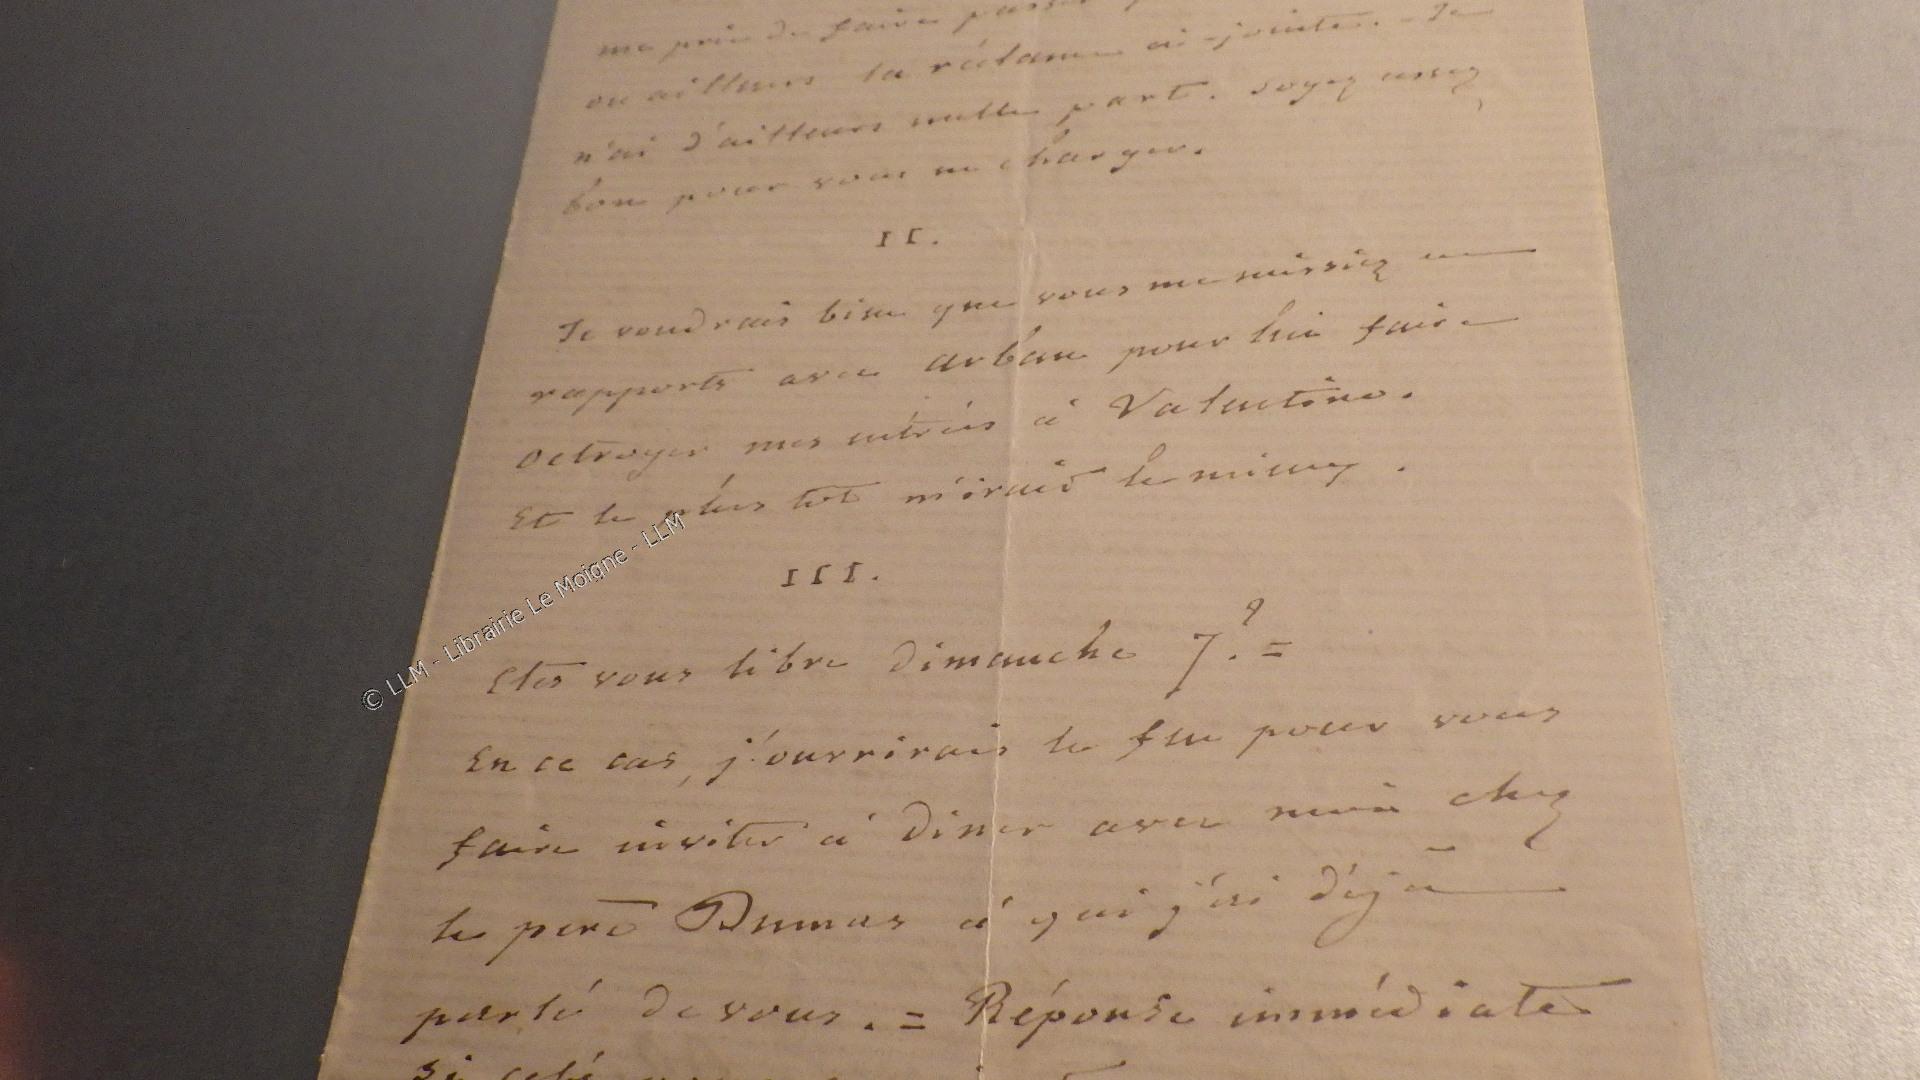 me prie de faire passer
ou ailleurs la réclame ci-jointe. - Je
n'ai d'ailleurs nulle part. Soyez assez
bon pour vous en charger.
II.
Je voudrais bien que vous me missiez en
rapports avec Arban pour lui faire
octroyer mes entrées à Valentino.
Et le plus tôt m'irait le mieux.
III.
Etes vous libre dimanche 7.? =
En ce cas, j'ouvrirais le feu pour vous
faire inviter à diner avec moi chez
le père Dumas à qui j'ai déjà
parlé de vous. = Réponse immédiate
si
© LLM - Librairie Le Moigne - LLM